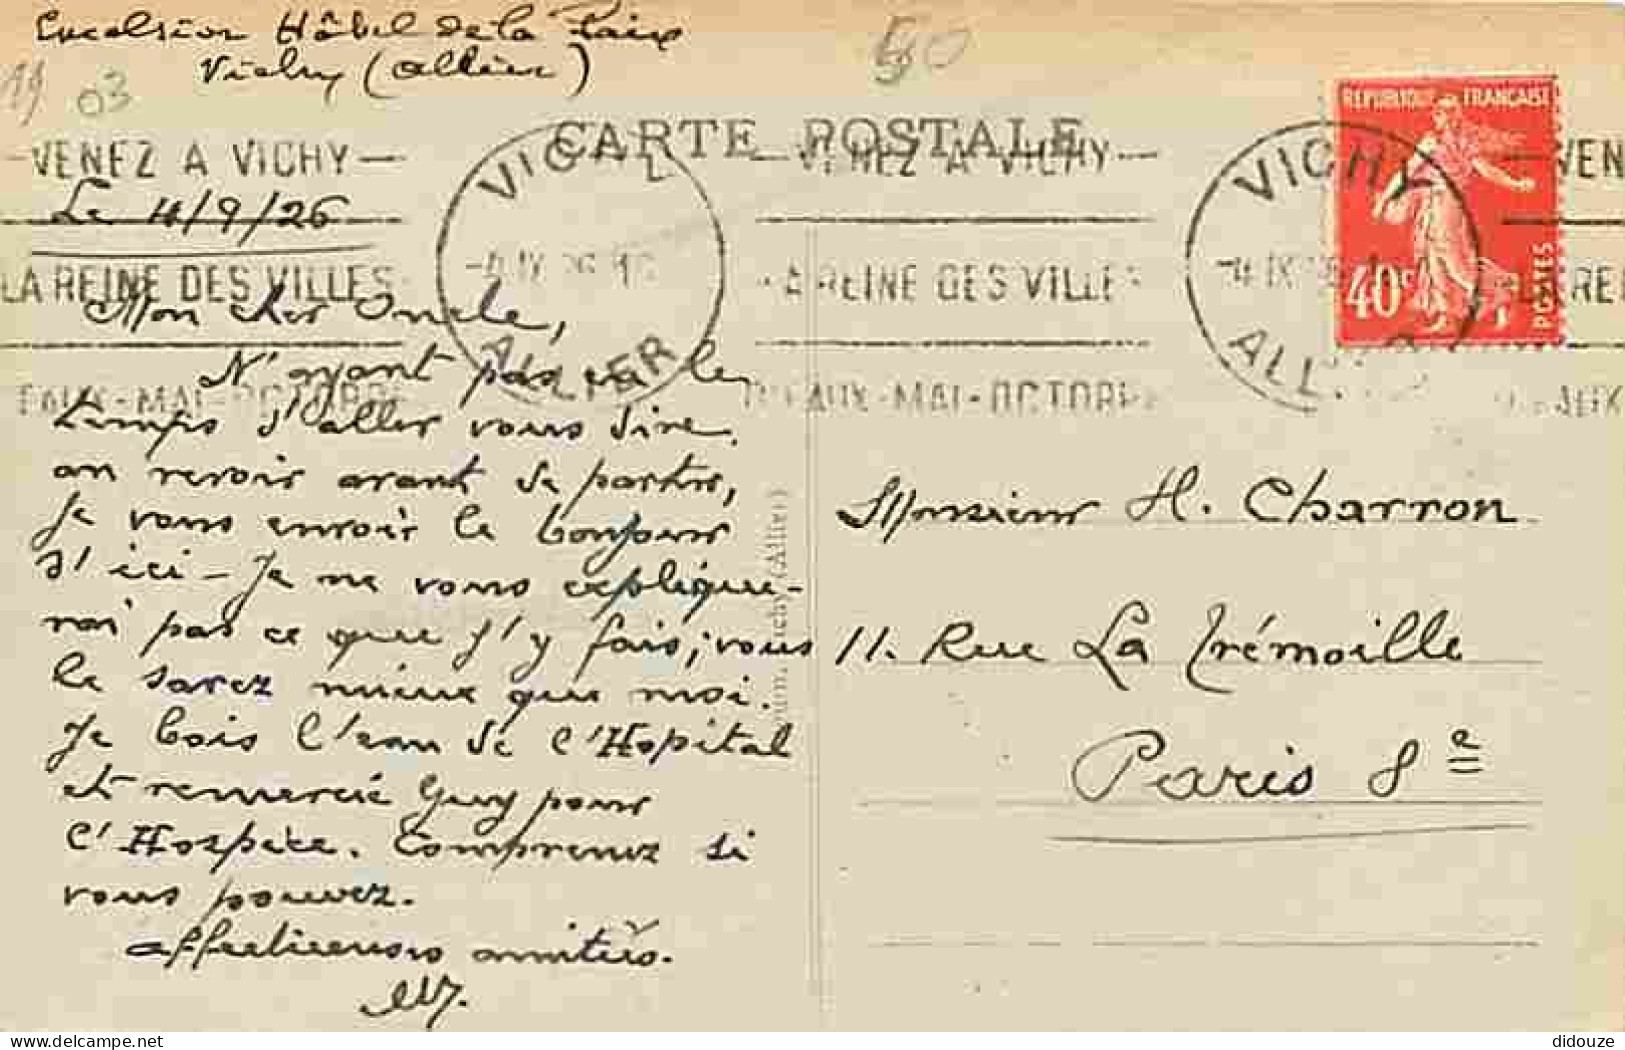 Excelsior Hôtel de la Paix
Vichy (Allier)
03
CARTE POSTALE
RÉPUBLIQUE FRANÇAISE
40c
POSTES
VICHY
ALLIER
VENEZ A VICHY
LA REINE DES VILLES
D'EAUX-MAI-OCTOBRE
VICHY
ALLIER
VENEZ A VICHY
LA REINE DES VILLES
D'EAUX-MAI-OCTOBRE
Le 4/9/26
Mon cher Oncle,
N'ayant pas eu le
temps d'aller vous dire
au revoir avant de partir,
je vous envoie le bonjour
d'ici - Je ne vous explique-
rai pas ce que j'y fais; vous
le savez mieux que moi.
Je bois l'eau de l'Hôpital
et remercie Guy pour
l'Hospice. Comprenez si
vous pouvez.
Affectueuses amitiés.
Monsieur H. Charron
11. Rue La Trémoille
Paris 8e
Vichy (Allier)
delcampe.net
didouze